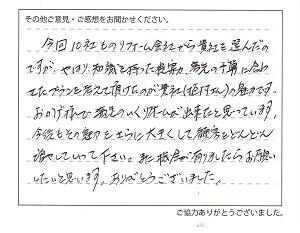 その他ご意見・ご感想をお聞かせください。
今回10社ものリフォーム会社から貴社を選んだの
ですが、やはり知識を持った提案力、
プランを考えて頂けたのが貴社の魅力です。
おかげ様で満足のいくリフォームが出来たと思っています。
今後もその魅力をさらに大きくして顧客をどんどん
増やしていって下さい。又機会が有りましたらお願い
したいと思います。ありがとうございました。
ご協力ありがとうございました。